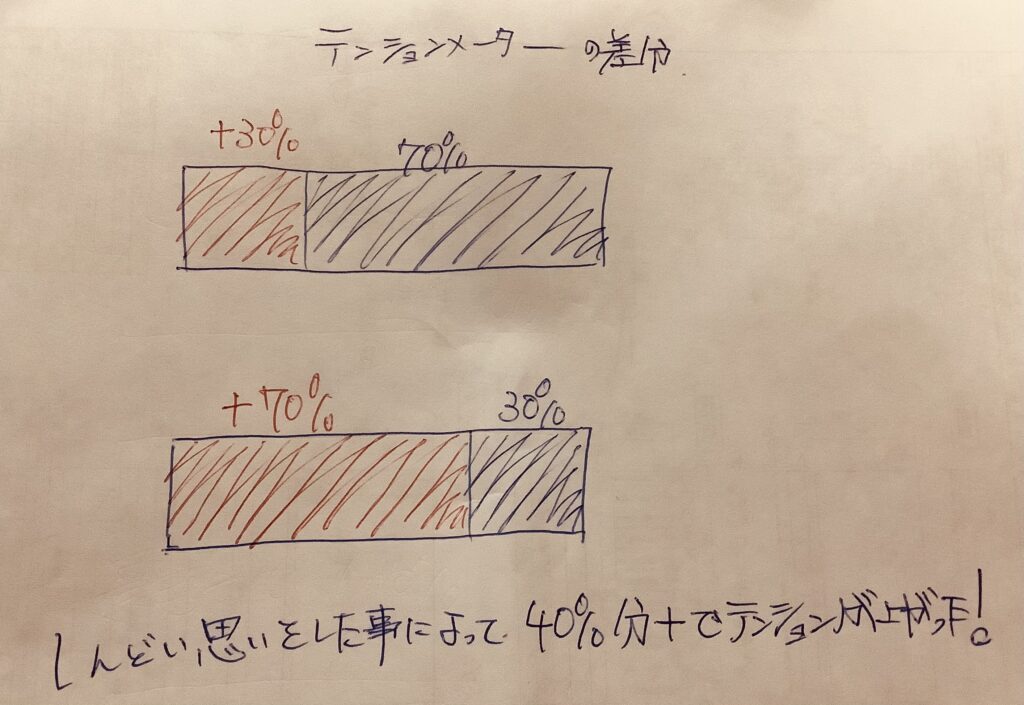 テンションメーターの差分
+30% 70%
+70% 30%
しんどい思いをした事によって 40%分+でテンションが上がった!